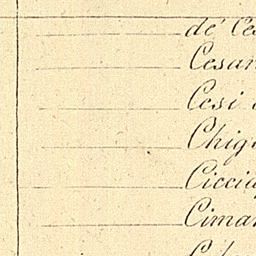 de' Ces
Cesar
Cesi
Chigi
Ciccia
Cimar